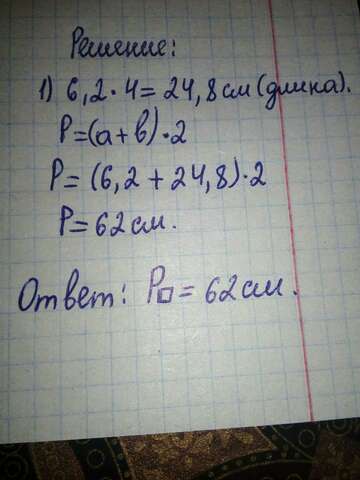 Решение:
1) 6,2·4=24,8см(длина).
P=(a+b)·2
P=(6,2+24,8)·2
P=62см.
Ответ: P□=62см.